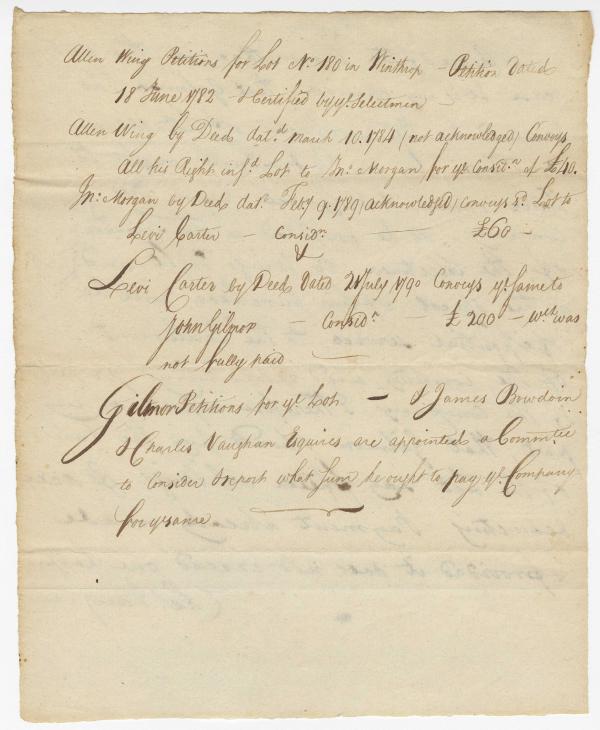 Allen Wing Petitions for Lot No. 180 in Winthrop – Petition Dated
18 June 1782 – & Certified by ye. Selectmen –
Allen Wing by Deed dat.d March 10. 1784 (not acknowledged) Conveys
All his Right in sd. Lot to Jno. Morgan for ye. Consid.n of £40.
Jno. Morgan by Deed dat.d Feby 9. 1789 (acknowledged) conveys sd. Lot to
Levi Carter – Considn. – £60 –
&
Levi Carter by Deed Dated 21 July 1790 Conveys ye. Same to
John Gilmor – Considn. – £200 – wch. was
not fully paid –
Gilmor Petitions for ye. Lot – & James Bowdoin
& Charles Vaughan Esquires are appointed a Committee
to Consider & report what Sum he ought to pay ye. Company
for ye same